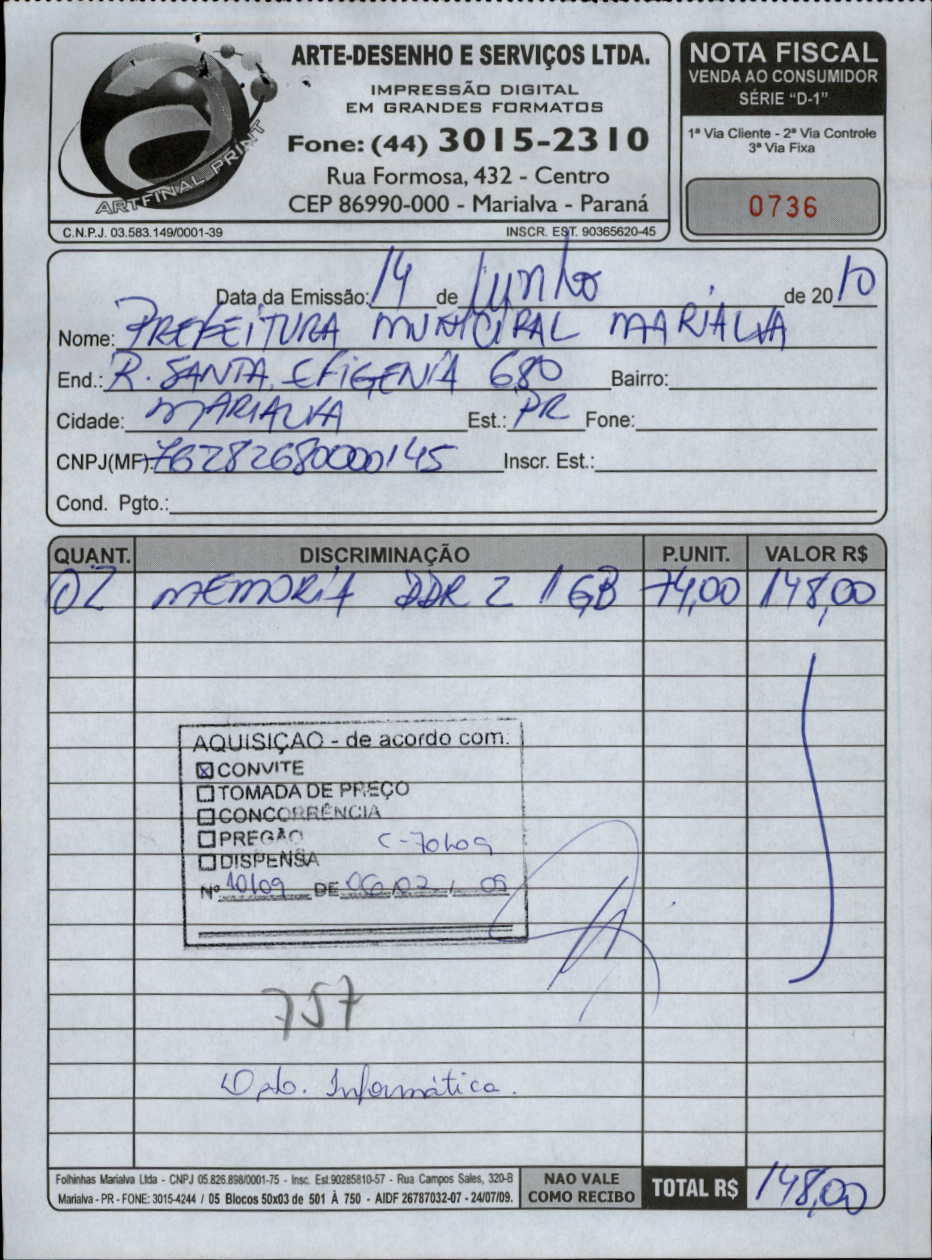 ARTE-DESENHO E SERVIÇOS LTDA.
IMPRESSÃO DIGITAL
EM GRANDES FORMATOS
Fone: (44) 3015-2310
Rua Formosa, 432 - Centro
CEP 86990-000 - Marialva - Paraná
ARTFINAL PRINT
C.N.P.J. 03.583.149/0001-39 INSCR. EST. 90365620-45
NOTA FISCAL
VENDA AO CONSUMIDOR
SÉRIE “D-1”
1ª Via Cliente - 2ª Via Controle
3ª Via Fixa
0736
Data da Emissão: 14 de Junho de 2010
Nome: PREFEITURA MUNICIPAL MARIALVA
End.: R. SANTA EFIGENIA 680 Bairro:
Cidade: MARIALVA Est.: PR Fone:
CNPJ(MF): 76282680000145 Inscr. Est.:
Cond. Pgto.:
QUANT. DISCRIMINAÇÃO P.UNIT. VALOR R$
02 MEMORIA DDR 2 1GB 74,00 148,00
AQUISIÇAO - de acordo com.
CONVITE
TOMADA DE PREÇO
CONCORRÊNCIA
PREGÃO
DISPENSA
Nº 10/09 DE 06/02/ 09
757
Dpto. Informática.
Folhinhas Marialva Ltda - CNPJ 05.826.898/0001-75 - Insc. Est.90285810-57 - Rua Campos Sales, 320-B
Marialva - PR - FONE: 3015-4244 / 05 Blocos 50x03 de 501 À 750 - AIDF 26787032-07 - 24/07/09.
NAO VALE
COMO RECIBO
TOTAL R$ 148,00